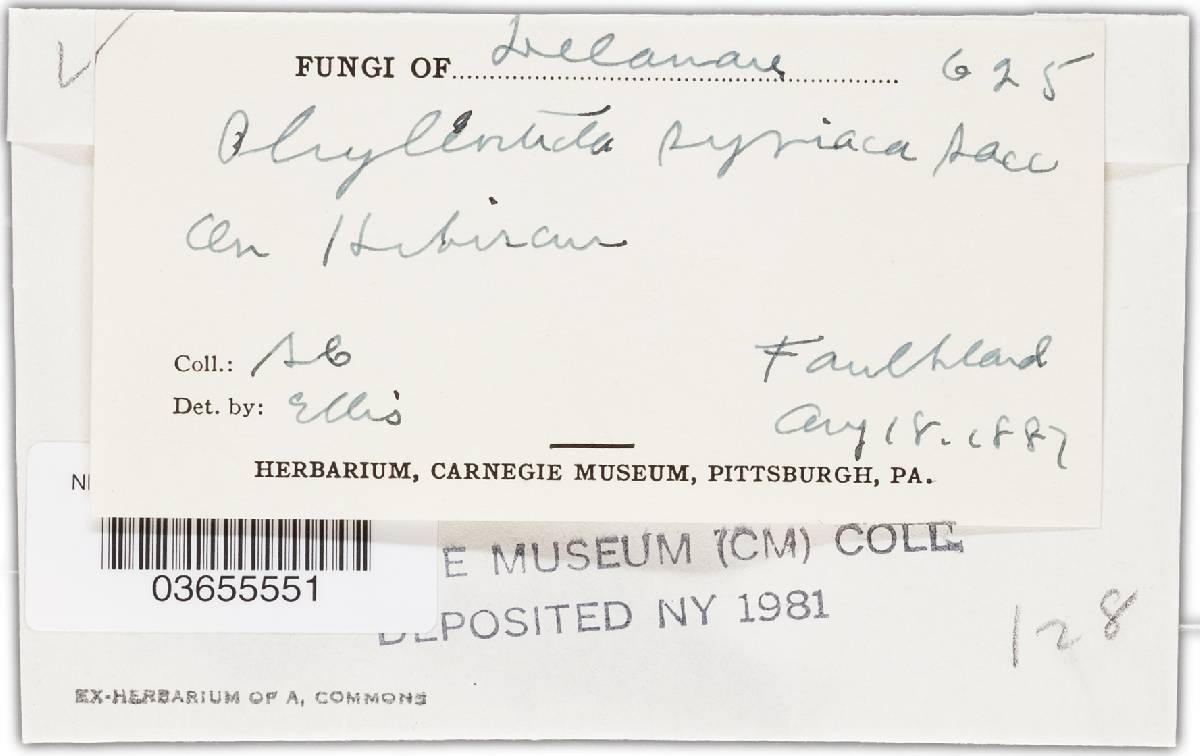 FUNGI OF Delaware 625
Phyllosticta syriaca Sacc
On Hibiscus
Coll.: AC Faulkland
Det. by: Ellis Aug 18. 1887
HERBARIUM, CARNEGIE MUSEUM, PITTSBURGH, PA.
E MUSEUM (CM) COLL.
03655551
DEPOSITED NY 1981
128
EX-HERBARIUM OF A. COMMONS